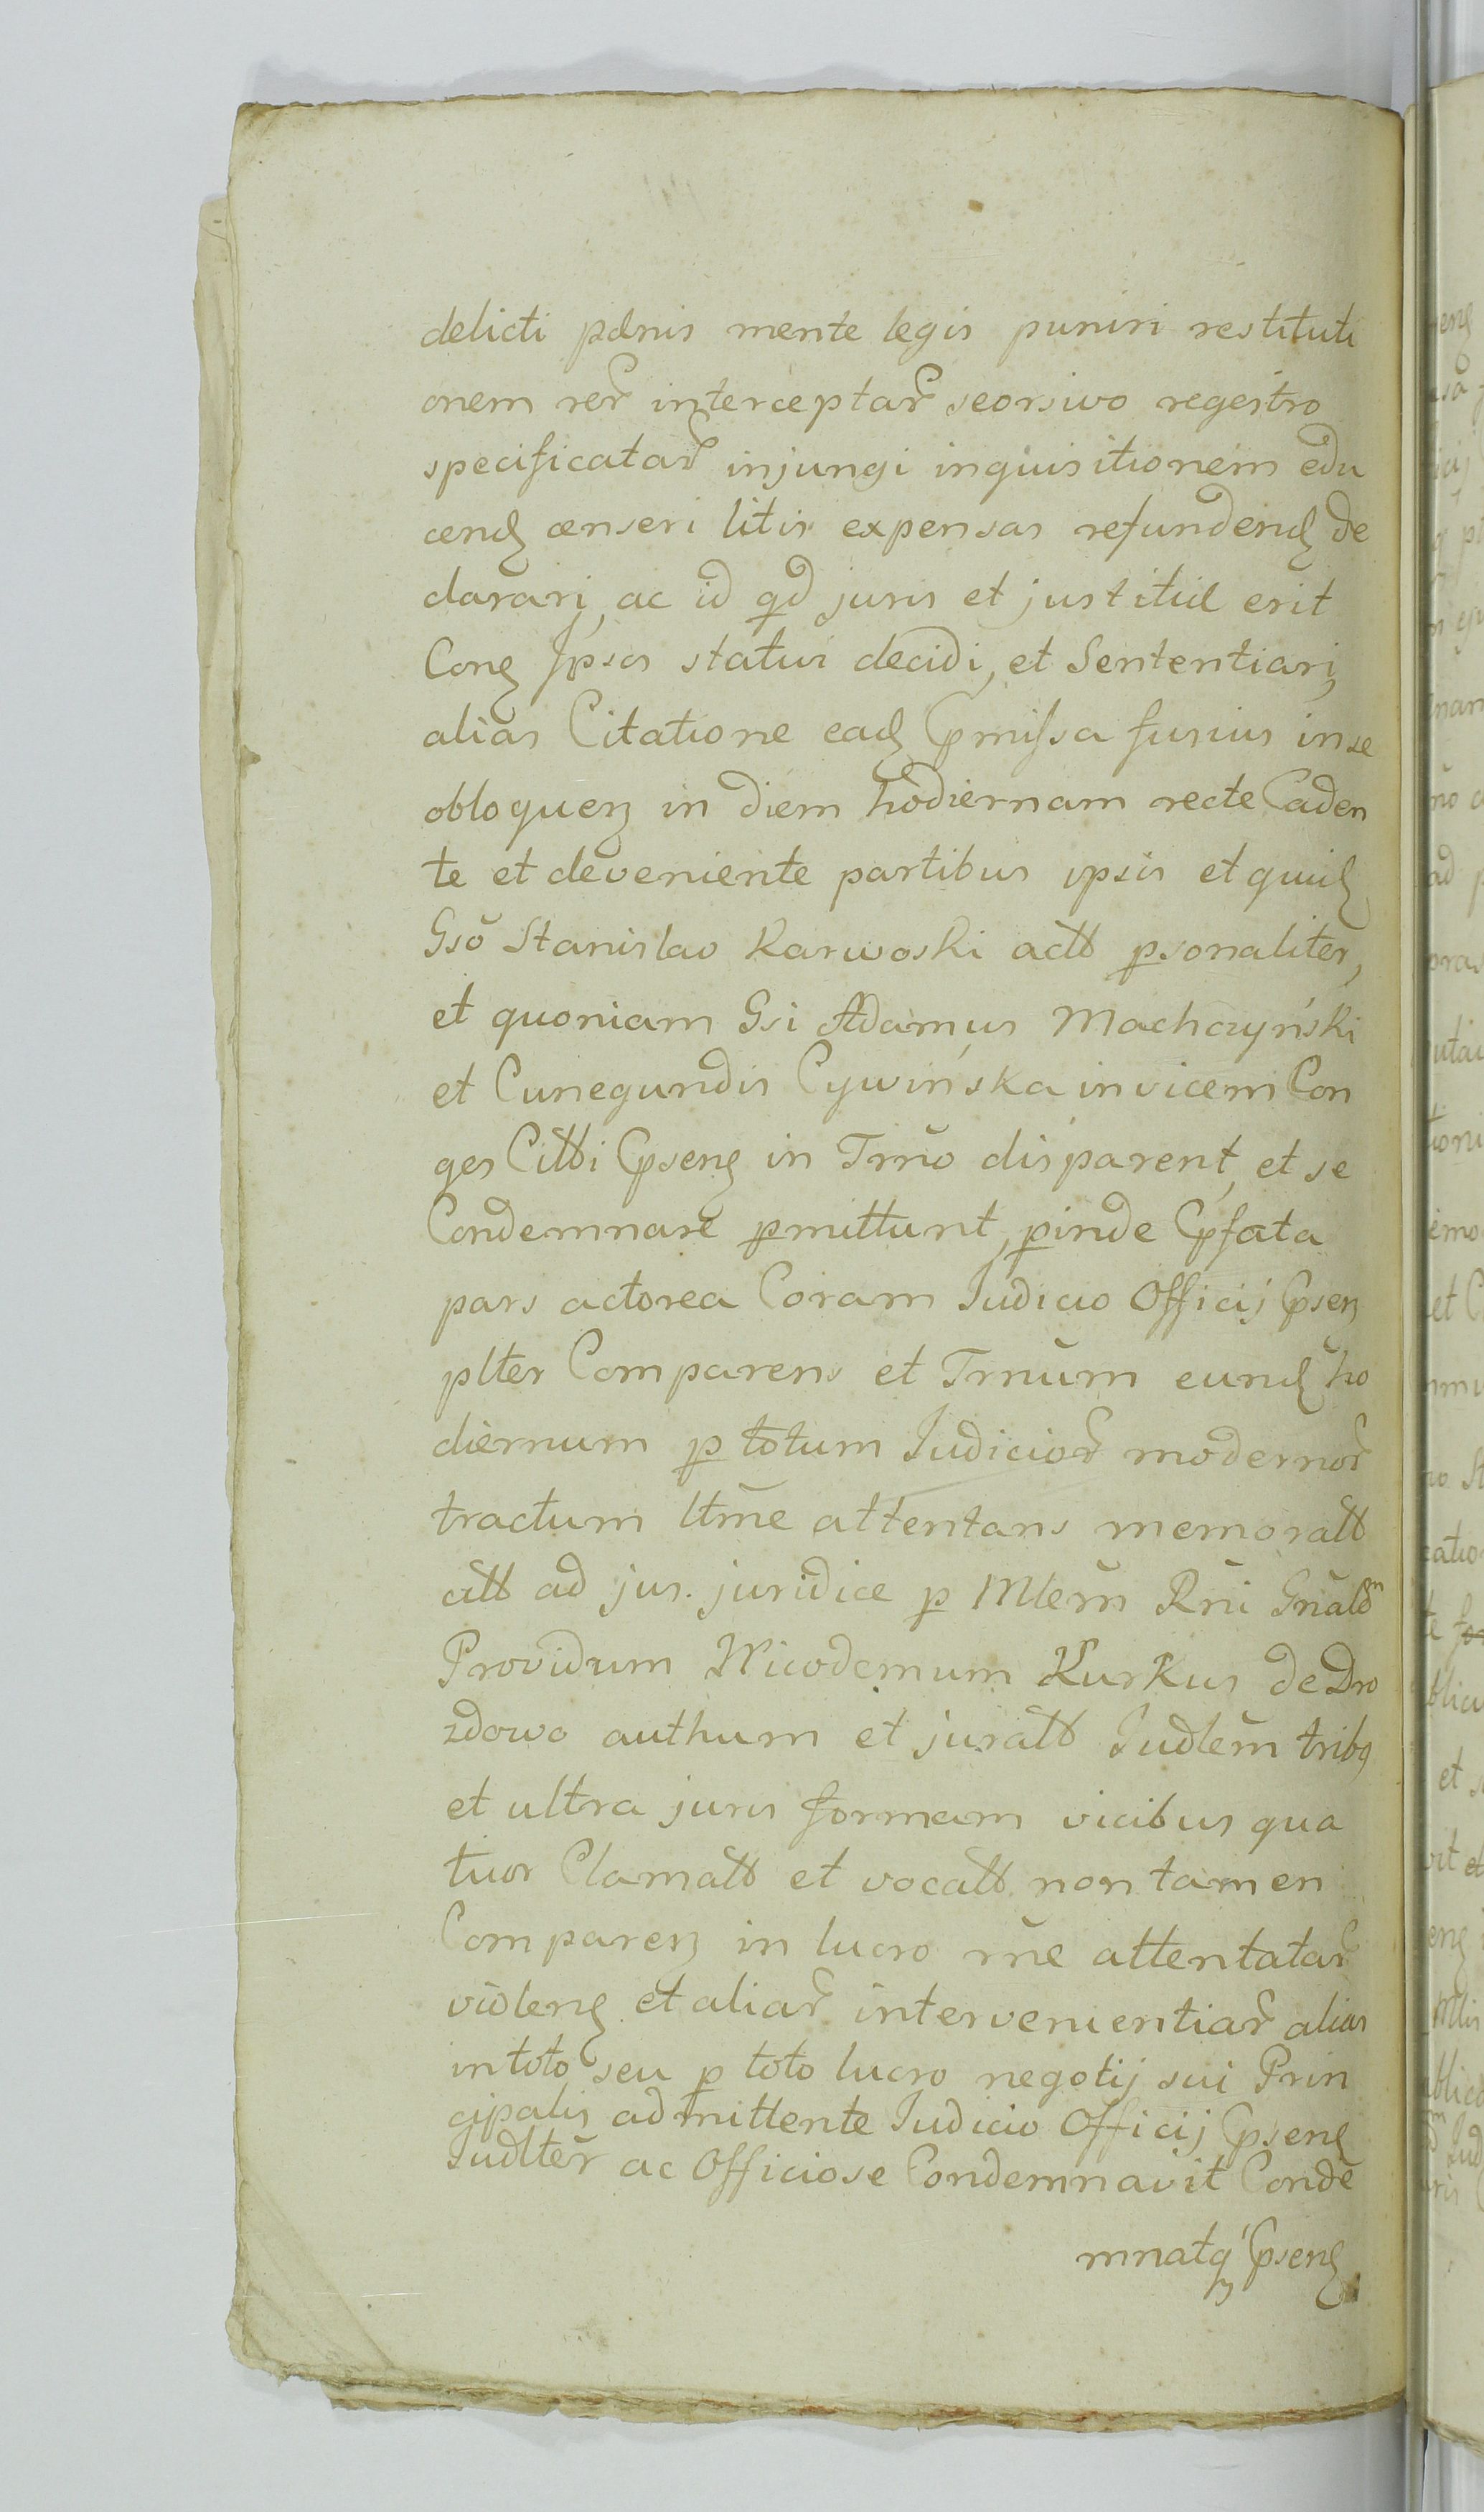 delicti pænis mente legis puniri restituti
onem reȓ interceptaȓ seorsivo regestro
specificataȓ injungi inquisitionem edu
cenđ censeri litis expensas refundenđ de
clarari, ac id qđ juris et justitiæ erit
Conȝ Ipsos statui decidi, et Sententiari,
alias Citatione eađ Præmissa fusius in se
obloquenȝ in diem hodiernam recte Caden
te et deveniente partibus ipsis et quiđ
Gsō Stanislao Karwoski actt̃ p̱sonaliter,
et quoniam Gsi Adamus Machczyński
et Cunegundis Cywińska invicem Con
ges Citt̃i Præsenȝ in Trnō disparent, et se
Condemnare p̱mittunt, p̱inde Præfata
pars actorea Coram Iudicio Officij Præsenȝ
plter Comparens et Trnūm eunđ ho
diernum p̱ totum Iudicioȓ modernoȓ
tractum ltm̄e attentans memoratt̃
citt̃ ad jus. juridice p̱ Mlem̄ Rn̄i Gn̄alem
Providum Nicodemum Kurkus de Dro
zdowo authum et juratt̃ Iudlem̄ tribꝫ
et ultra juris formam vicibus qua
tuor Clamatt̃ et vocatt̃ non tamen
Comparenȝ in lucro rn̄e attentataȓ
violenȝ et aliaȓ intervenientiaȓ alias
in toto seu p̱ toto lucro negotij sui Prin
cipalis admittente Iudicio Officij Præsenȝ
Iudlter̄ ac Officiose Condemnavit Conde
mnatqꝫ Præsenȝ